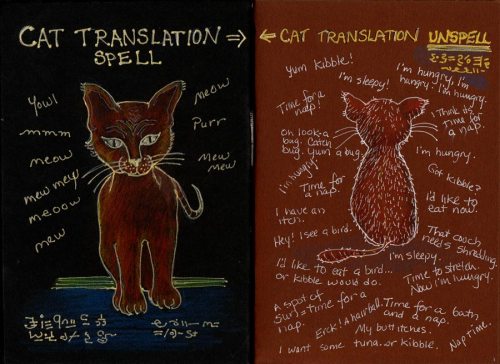 CAT TRANSLATION ⇒
SPELL
Yowl
mmm
meow
mew mew
meoow
mew
meow
Purr
Mew
mew
← CAT TRANSLATION UNSPELL
Yum Kibble!
I'm sleepy!
I'm hungry, I'm
hungry. I'm hungry.
Time for a
nap!
I think it's
Time for
a nap.
oh look-a
bug. Catch
bug. Yum a bug.
I'm hungry.
I'm hungry
Time
for a
nap.
Got Kibble?
I'd like to
eat now.
I have an
itch.
Hey! I see a bird.
That couch
needs shredding.
I'm sleepy.
I'd like to eat a bird...
or kibble would do.
Time to stretch
Now I'm hungry.
A spot of
sun = time for a
nap.
Time for a bath
and a nap.
Eick! A hairball.
My butt itches.
I want some tuna..or kibble.
Nap Time.